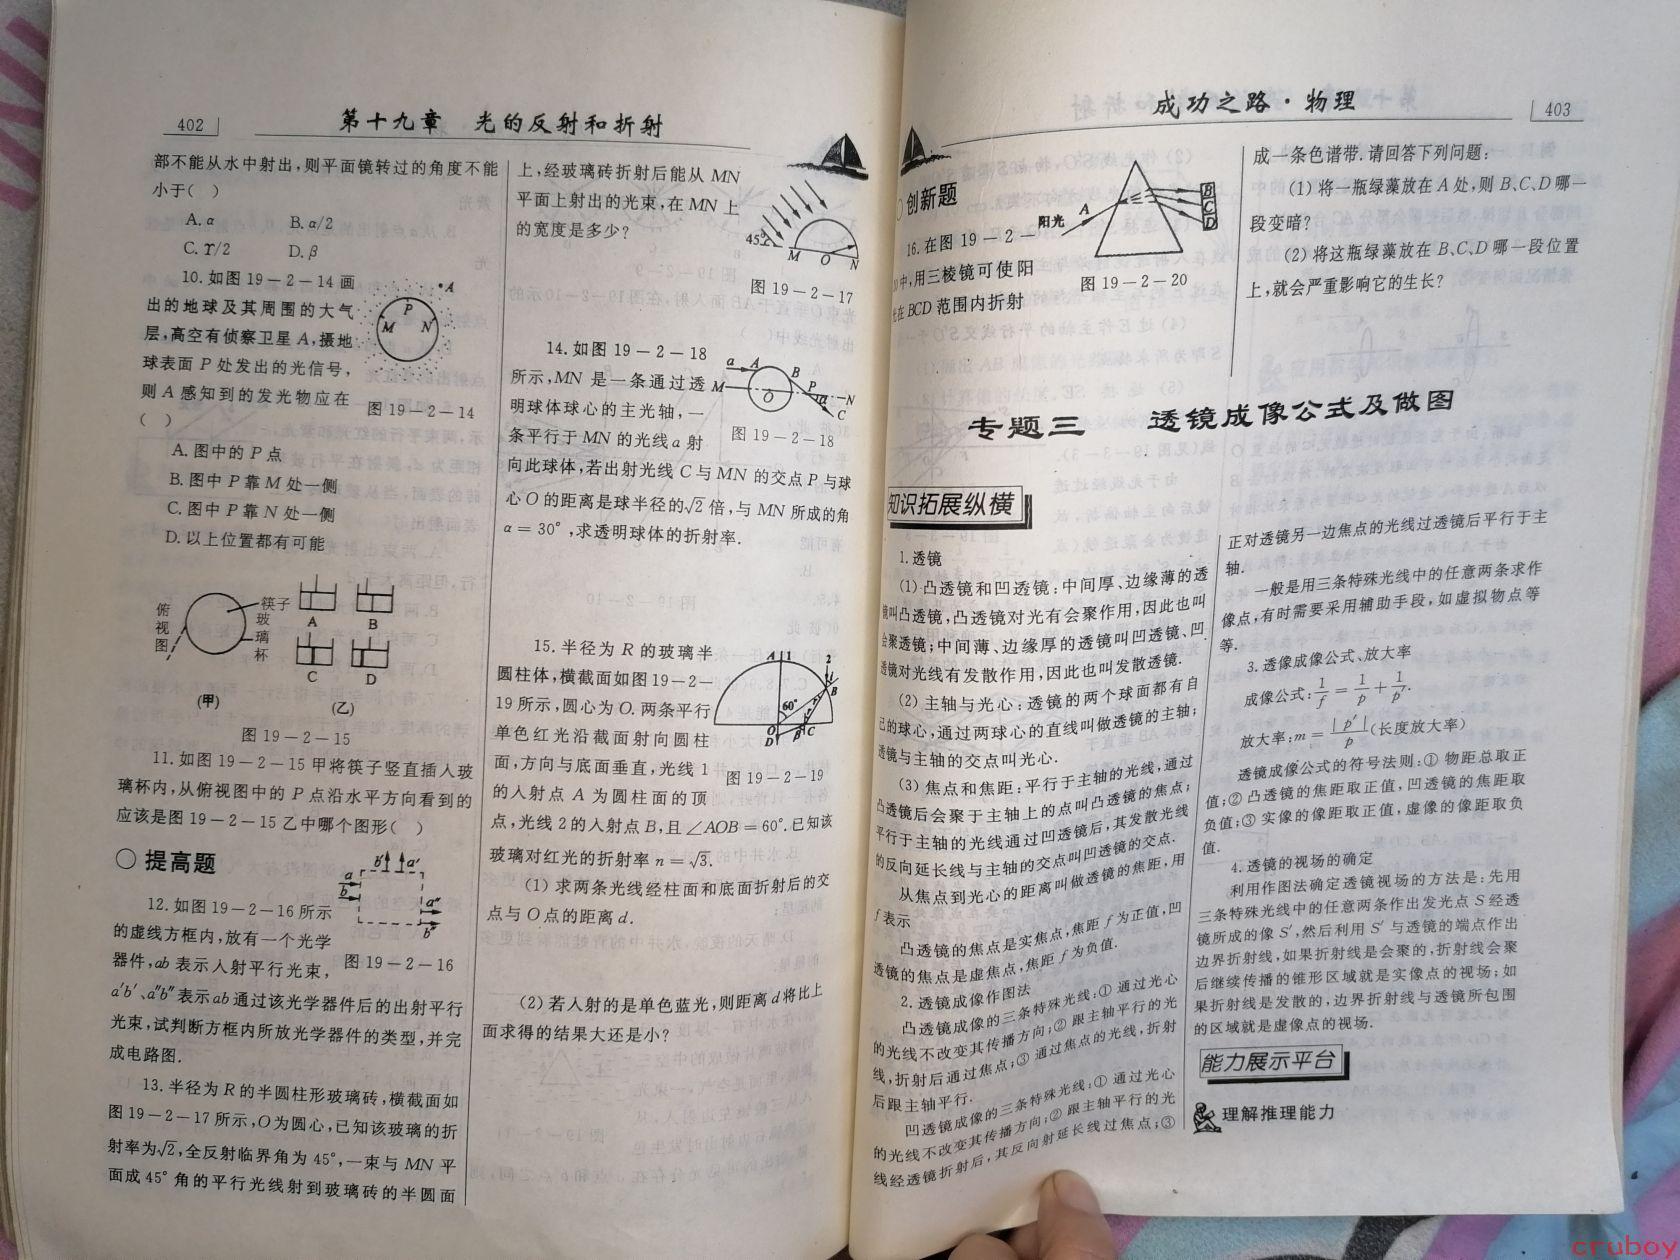 402
第十九章 光的反射和折射
部不能从水中射出,则平面镜转过的角度不能
小于( )
A. α B. α/2
C. γ/2 D. β
10. 如图 19-2-14 画
出的地球及其周围的大气
层,高空有侦察卫星 A,摄地
球表面 P 处发出的光信号,
则 A 感知到的发光物应在
( )
A
P
M N
图 19-2-14
A. 图中的 P 点
B. 图中 P 靠 M 处一侧
C. 图中 P 靠 N 处一侧
D. 以上位置都有可能
俯视图
筷子
玻璃杯
A B
C D
(甲) (乙)
图 19-2-15
11. 如图 19-2-15 甲将筷子竖直插入玻
璃杯内,从俯视图中的 P 点沿水平方向看到的
应该是图 19-2-15 乙中哪个图形( )
○ 提高题
12. 如图 19-2-16 所示
的虚线方框内,放有一个光学
器件,ab 表示入射平行光束,
b′ a′
a
b
a″
b″
图 19-2-16
a′b′、a″b″表示ab通过该光学器件后的出射平行
光束,试判断方框内所放光学器件的类型,并完
成电路图.
13. 半径为 R 的半圆柱形玻璃砖,横截面如
图 19-2-17 所示,O为圆心,已知该玻璃的折
射率为√2,全反射临界角为 45°,一束与 MN 平
面成 45° 角的平行光线射到玻璃砖的半圆面
上,经玻璃砖折射后能从 MN
平面上射出的光束,在 MN 上
的宽度是多少?
45°
M O N
图 19-2-17
14. 如图 19-2-18
所示,MN 是一条通过透
明球体球心的主光轴,一
条平行于 MN 的光线 a 射
a A B
M O P α N
C
图 19-2-18
向此球体,若出射光线 C 与 MN 的交点 P 与球
心 O 的距离是球半径的√2 倍,与 MN 所成的角
α = 30°,求透明球体的折射率.
15. 半径为 R 的玻璃半
圆柱体,横截面如图 19-2-
19 所示,圆心为 O. 两条平行
单色红光沿截面射向圆柱
面,方向与底面垂直,光线 1
的入射点 A 为圆柱面的顶
A 1 2
i
B
60°
O
D β C
图 19-2-19
点,光线 2 的入射点 B,且 ∠AOB = 60°. 已知该
玻璃对红光的折射率 n = √3.
(1) 求两条光线经柱面和底面折射后的交
点与 O 点的距离 d.
(2) 若入射的是单色蓝光,则距离 d 将比上
面求得的结果大还是小?
成功之路·物理
403
创新题
16. 在图 19-2-
中,用三棱镜可使阳
在 BCD 范围内折射
阳光 A
B
C
D
图 19-2-20
成一条色谱带. 请回答下列问题:
(1) 将一瓶绿藻放在 A 处,则 B、C、D 哪一
段变暗?
(2) 将这瓶绿藻放在 B、C、D 哪一段位置
上,就会严重影响它的生长?
专题三 透镜成像公式及做图
知识拓展纵横
1. 透镜
(1) 凸透镜和凹透镜:中间厚、边缘薄的透
镜叫凸透镜,凸透镜对光有会聚作用,因此也叫
会聚透镜;中间薄、边缘厚的透镜叫凹透镜、凹
透镜对光线有发散作用,因此也叫发散透镜.
(2) 主轴与光心:透镜的两个球面都有自
己的球心,通过两球心的直线叫做透镜的主轴;
透镜与主轴的交点叫光心.
(3) 焦点和焦距:平行于主轴的光线,通过
凸透镜后会聚于主轴上的点叫凸透镜的焦点;
平行于主轴的光线通过凹透镜后,其发散光线
的反向延长线与主轴的交点叫凹透镜的交点.
从焦点到光心的距离叫做透镜的焦距,用
f 表示
凸透镜的焦点是实焦点,焦距 f 为正值,凹
透镜的焦点是虚焦点,焦距 f 为负值.
2. 透镜成像作图法
凸透镜成像的三条特殊光线:① 通过光心
的光线不改变其传播方向;② 跟主轴平行的光
线,折射后通过焦点;③ 通过焦点的光线,折射
后跟主轴平行.
凹透镜成像的三条特殊光线:① 通过光心
的光线不改变其传播方向;② 跟主轴平行的光
线经透镜折射后,其反向射延长线过焦点;③
正对透镜另一边焦点的光线过透镜后平行于主
轴.
一般是用三条特殊光线中的任意两条求作
像点,有时需要采用辅助手段,如虚拟物点等
等.
3. 透像成像公式、放大率
成像公式:1/f = 1/p + 1/p′.
放大率:m = |p′|/p (长度放大率)
透镜成像公式的符号法则:① 物距总取正
值;② 凸透镜的焦距取正值,凹透镜的焦距取
负值;③ 实像的像距取正值,虚像的像距取负
值.
4. 透镜的视场的确定
利用作图法确定透镜视场的方法是:先用
三条特殊光线中的任意两条作出发光点 S 经透
镜所成的像 S′,然后利用 S′ 与透镜的端点作出
边界折射线,如果折射线是会聚的,折射线会聚
后继续传播的锥形区域就是实像点的视场;如
果折射线是发散的,边界折射线与透镜所包围
的区域就是虚像点的视场.
能力展示平台
理解推理能力
cruboy